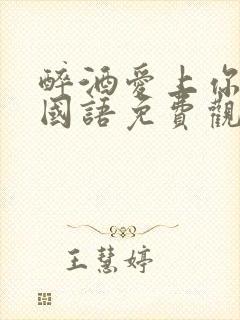 醉酒愛上你
國語免費觀
王慧婷